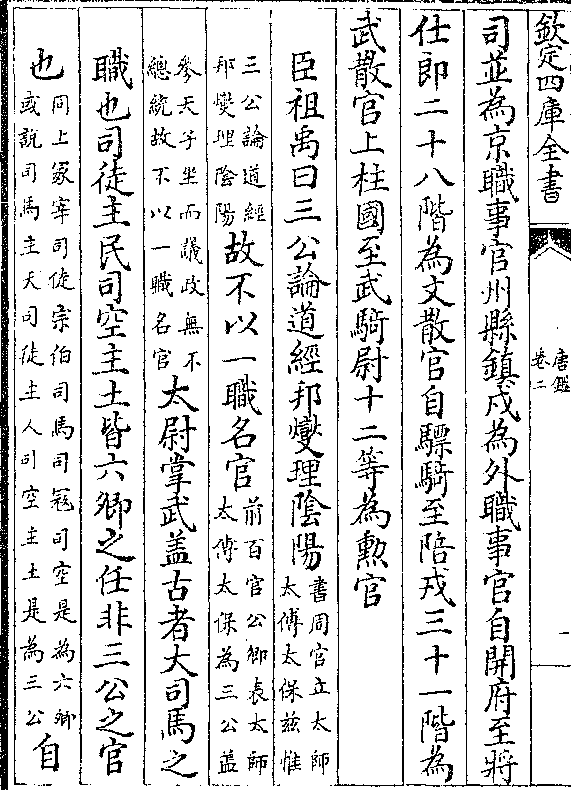 欽定四庫全書
唐鑑
卷二
一
司並為京職事官州縣鎮戍為外職事官自開府至將
仕郎二十八階為文散官自驃騎至陪戎三十一階為
武散官上柱國至武騎尉十二等為勲官
臣祖禹曰三公論道經邦燮理隂陽
書周官立太師
太傅太保兹惟
三公論道經
邦燮理隂陽
故不以一職名官
前百官公卿表太師
太傅太保為三公盖
參天子坐而議政無不
總統故不以一職名官
太尉掌武盖古者大司馬之
職也司徒主民司空主土皆六卿之任非三公之官
也
同上冢宰司徒宗伯司馬司寇司空是為六卿
或説司馬主天司徒主人司空主土是為三公
自